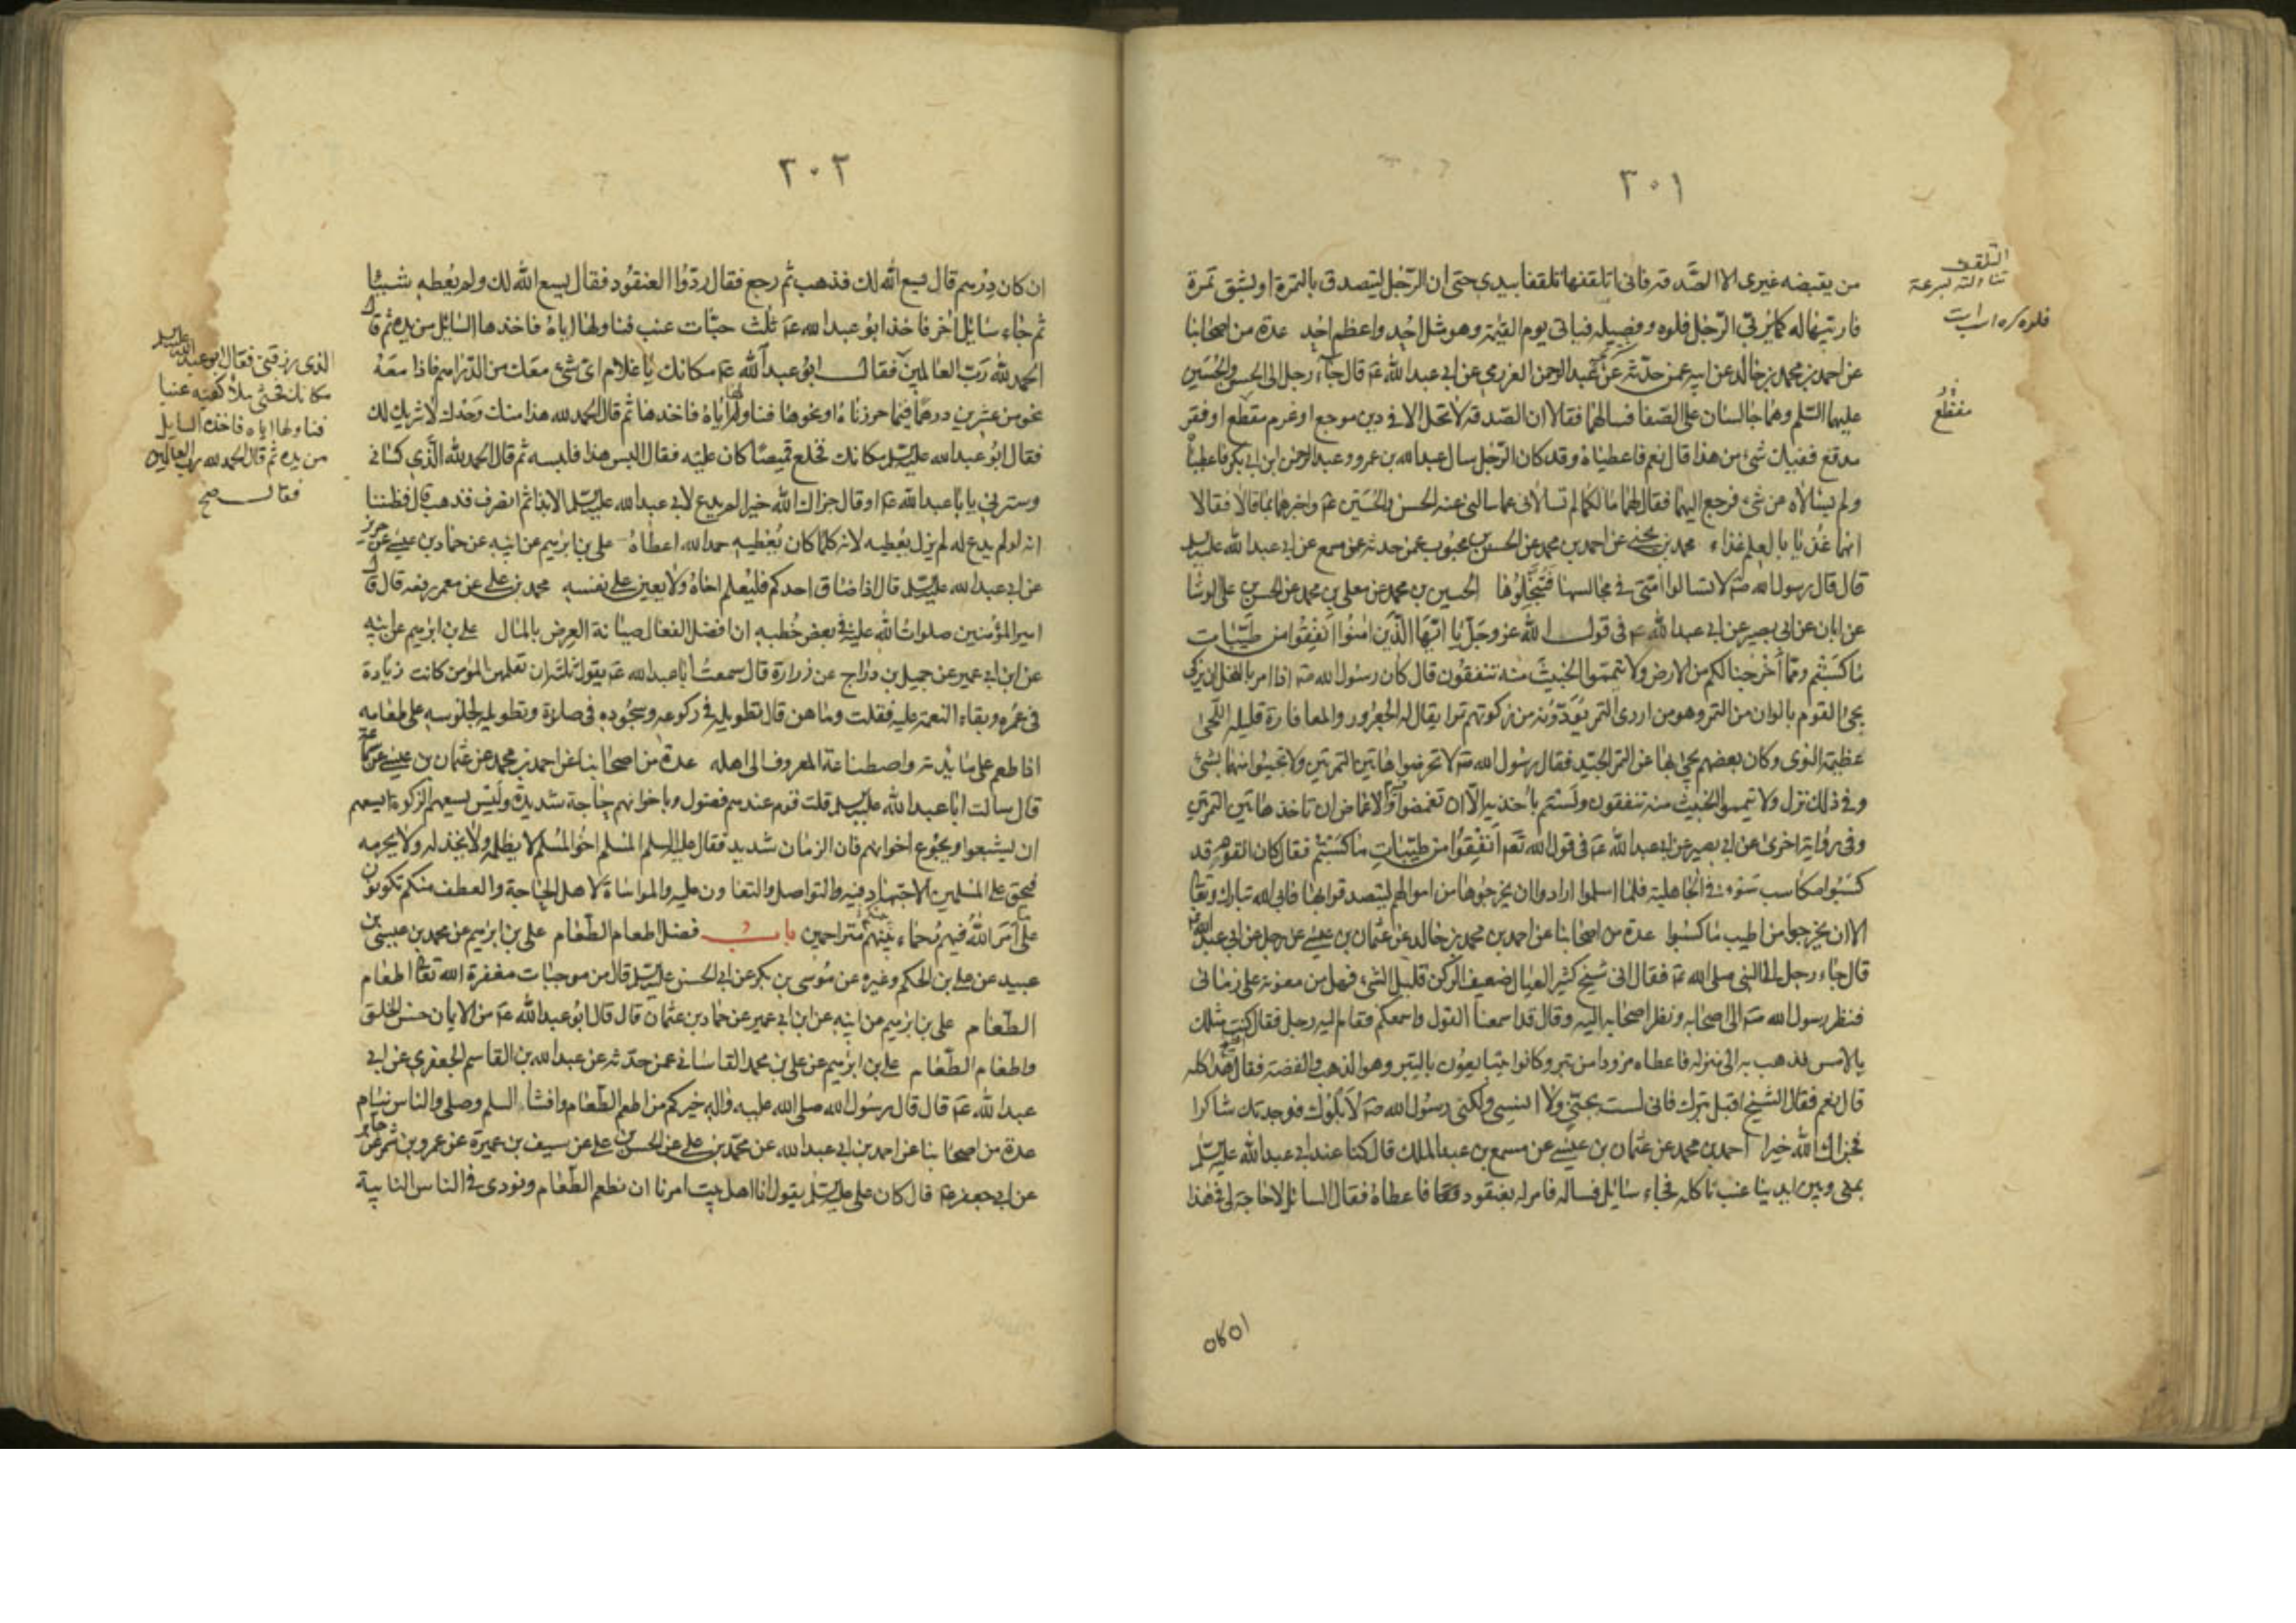 ٣٠١
من يقبضه غيري الا الصدقة فاني اتلقفها تلقفا بيدي حتى ان الرجل ليتصدق بالتمرة او بشق تمرة
فاربيها له كما يربي الرجل فلوه وفصيله فياتي يوم القيمة وهو مثل احد واعظم احد عدة من اصحابنا
عن احمد بن محمد بن خالد عن ابيه عمن حدثه عن عبد الرحمن العزرمي عن ابي عبد الله عم قال جاء رجل الى الحسن والحسين
عليهما السلم وهما جالسان على الصفا فسالهما فقالا ان الصدقة لا تحل الا في دين موجع او غرم مقطع او فقر
مدقع ففيك شيء من هذا قال نعم فاعطياه وقد كان الرجل سال عبد الله بن عمر وعبد الرحمن ابن ابي بكر فاعطياه
ولم يسالاه عن شيء فرجع اليهما فقال لهما ما لكما لم تسالاني عما سالني عنه الحسن والحسين عم واخبرهما بما قالا فقالا
انهما غذيا بالعلم غذاء محمد بن يحيى عن احمد بن محمد عن الحسن بن محبوب عمن حدثه عن مسمع عن ابي عبد الله عليه السلم
قال قال رسول الله صه لا تسالوا امتي في مجالسها فتبخلوها الحسين بن محمد عن معلى بن محمد عن الحسن بن علي الوشا
عن ابان عن ابي بصير عن ابي عبد الله عم في قول الله عز وجل يا ايها الذين امنوا انفقوا من طيبات
ما كسبتم ومما اخرجنا لكم من الارض ولا تيمموا الخبيث منه تنفقون قال كان رسول الله صه اذا امر بالنخل ان يزكى
يجيء القوم بالوان من التمر وهو من اردى التمر يؤدونه من زكوتهم تمرا يقال له الجعرور والمعافارة قليلة اللحى
عظيمة النوى وكان بعضهم يجيء بها عن التمر الجيد فقال رسول الله صه لا تخرصوا هاتين التمرتين ولا تجيئوا منها بشيء
وفي ذلك نزل ولا تيمموا الخبيث منه تنفقون ولستم باخذيه الا ان تغمضوا فيه والاغماض ان تاخذ هاتين التمرتين
وفي رواية اخرى عن ابي بصير عن ابي عبد الله عم في قول الله تعم انفقوا من طيبات ما كسبتم فقال كان القوم قد
كسبوا مكاسب سوء في الجاهلية فلما اسلموا ارادوا ان يخرجوها من اموالهم ليتصدقوا بها فابى الله تبارك وتعا
الا ان يخرجوا من اطيب ما كسبوا عدة من اصحابنا عن احمد بن محمد بن خالد عن عثمان بن عيسى عن رجل عن ابي عبد الله
قال جاء رجل الى النبي صلى الله عم فقال اني شيخ كثير العيال ضعيف الركن قليل الشيء فهل من معونة على زماني
فنظر رسول الله صه الى اصحابه ونظر اصحابه اليه وقال قد اسمعنا القول واسمعكم فقام اليه رجل فقال كنت مثلك
بالامس فذهب به الى منزله فاعطاه مزودا من تبر وكانوا يتبايعون بالتبر وهو الذهب والفضة فقال هذا كله
قال نعم فقال الشيخ اقبل تبرك فاني لست بجني ولا انسي ولكني رسول الله صه لابلوك فوجدتك شاكرا
فجزاك الله خيرا احمد بن محمد عن عثمان بن عيسى عن مسمع بن عبد الملك قال كنا عند ابي عبد الله عليه السلم
بمنى وبين ايدينا عنب ناكله فجاء سائل فساله فامر له بعنقود فاعطاه فقال السائل لا حاجة لي في هذا
التلقف
تناولته بسرعة
فلوه كره اسب است
مفظع
١٥٤٥
٣٠٢
ان كان درهم قال يسع الله لك فذهب ثم رجع فقال ردوا العنقود فقال يسع الله لك ولم يعطه شيئا
ثم جاء سائل اخر فاخذ ابو عبد الله عم ثلث حبات عنب فناولها اياه فاخذها السائل من يده ثم قال
الحمد لله رب العالمين فقال ابو عبد الله عم مكانك يا غلام اي شيء معك من الدراهم فاذا معه
نحو من عشرين درهما فيما حرزناه او نحوها فناولها اياه فاخذها ثم قال الحمد لله هذا منك وحدك لا شريك لك
فقال ابو عبد الله عليه السلم مكانك فخلع قميصا كان عليه فقال البس هذا فلبسه ثم قال الحمد لله الذي كساني
وسترني يا با عبد الله عم او قال جزاك الله خيرا لم يدع لابي عبد الله عليه السلم الا بذا ثم انصرف فذهب قال فظننا
انه لو لم يدع له لم يزل يعطيه لانه كلما كان يعطيه حمد الله اعطاه علي بن ابرهيم عن ابيه عن حماد بن عيسى عن حريز
عن ابي عبد الله عليه السلم قال اذا ضاق احدكم فليعلم اخاه ولا يعين على نفسه محمد بن علي عن معمر رفعه قال قال
امير المؤمنين صلوات الله عليه في بعض خطبه ان افضل الفعال صيانة العرض بالمال علي بن ابرهيم عن ابيه
عن ابن ابي عمير عن جميل بن دراج عن زرارة قال سمعت ابا عبد الله عم يقول ثلثه ان تعلمهن المؤمن كانت زيادة
في عمره وبقاء النعمة عليه فقلت وما هن قال تطويله في ركوعه وسجوده في صلاته وتطويله لجلوسه على طعامه
اذا طعم على مائدته واصطناعه المعروف الى اهله عدة من اصحابنا عن احمد بن محمد عن عثمان بن عيسى عن سماعة
قال سالت ابا عبد الله عليه السلم قلت قوم عندهم فضول وباخوانهم حاجة شديدة وليس يسعهم الزكوة ايسعهم
ان يشبعوا ويجوع اخوانهم فان الزمان شديد فقال عليه السلم المسلم اخو المسلم لا يظلمه ولا يخذله ولا يحرمه
فيحق على المسلمين الاجتهاد فيه والتواصل والتعاون عليه والمواساة لاهل الحاجة والعطف منكم تكونون
على ما امر الله فيهم رحماء بينهم متراحمين باب فضل اطعام الطعام علي بن ابرهيم عن محمد بن عيسى بن
عبيد عن علي بن الحكم وغيره عن موسى بن بكر عن ابي الحسن عليه السلم قال من موجبات مغفرة الله تعا اطعام
الطعام علي بن ابرهيم عن ابيه عن ابن ابي عمير عن حماد بن عثمان قال قال ابو عبد الله عم من الايمان حسن الخلق
واطعام الطعام علي بن ابرهيم عن علي بن محمد القاساني عمن حدثه عن عبد الله بن القاسم الجعفري عن ابي
عبد الله عم قال قال رسول الله صلى الله عليه واله خيركم من اطعم الطعام وافشا السلم وصلى والناس نيام
عدة من اصحابنا عن احمد بن ابي عبد الله عن محمد بن علي عن الحسن بن علي عن سيف بن عميرة عن عمرو بن شمر عن جابر
عن ابي جعفر عم قال كان علي عليه السلم يقول انا اهل بيت امرنا ان نطعم الطعام ونودي في الناس النايبة
الذي رزقني فقال ابو عبد الله عليه السلم
مكانك فحثى ملأ كفيه عنبا
فناولها اياه فاخذه السايل
من يده ثم قال الحمد لله رب العالمين
فقال صح